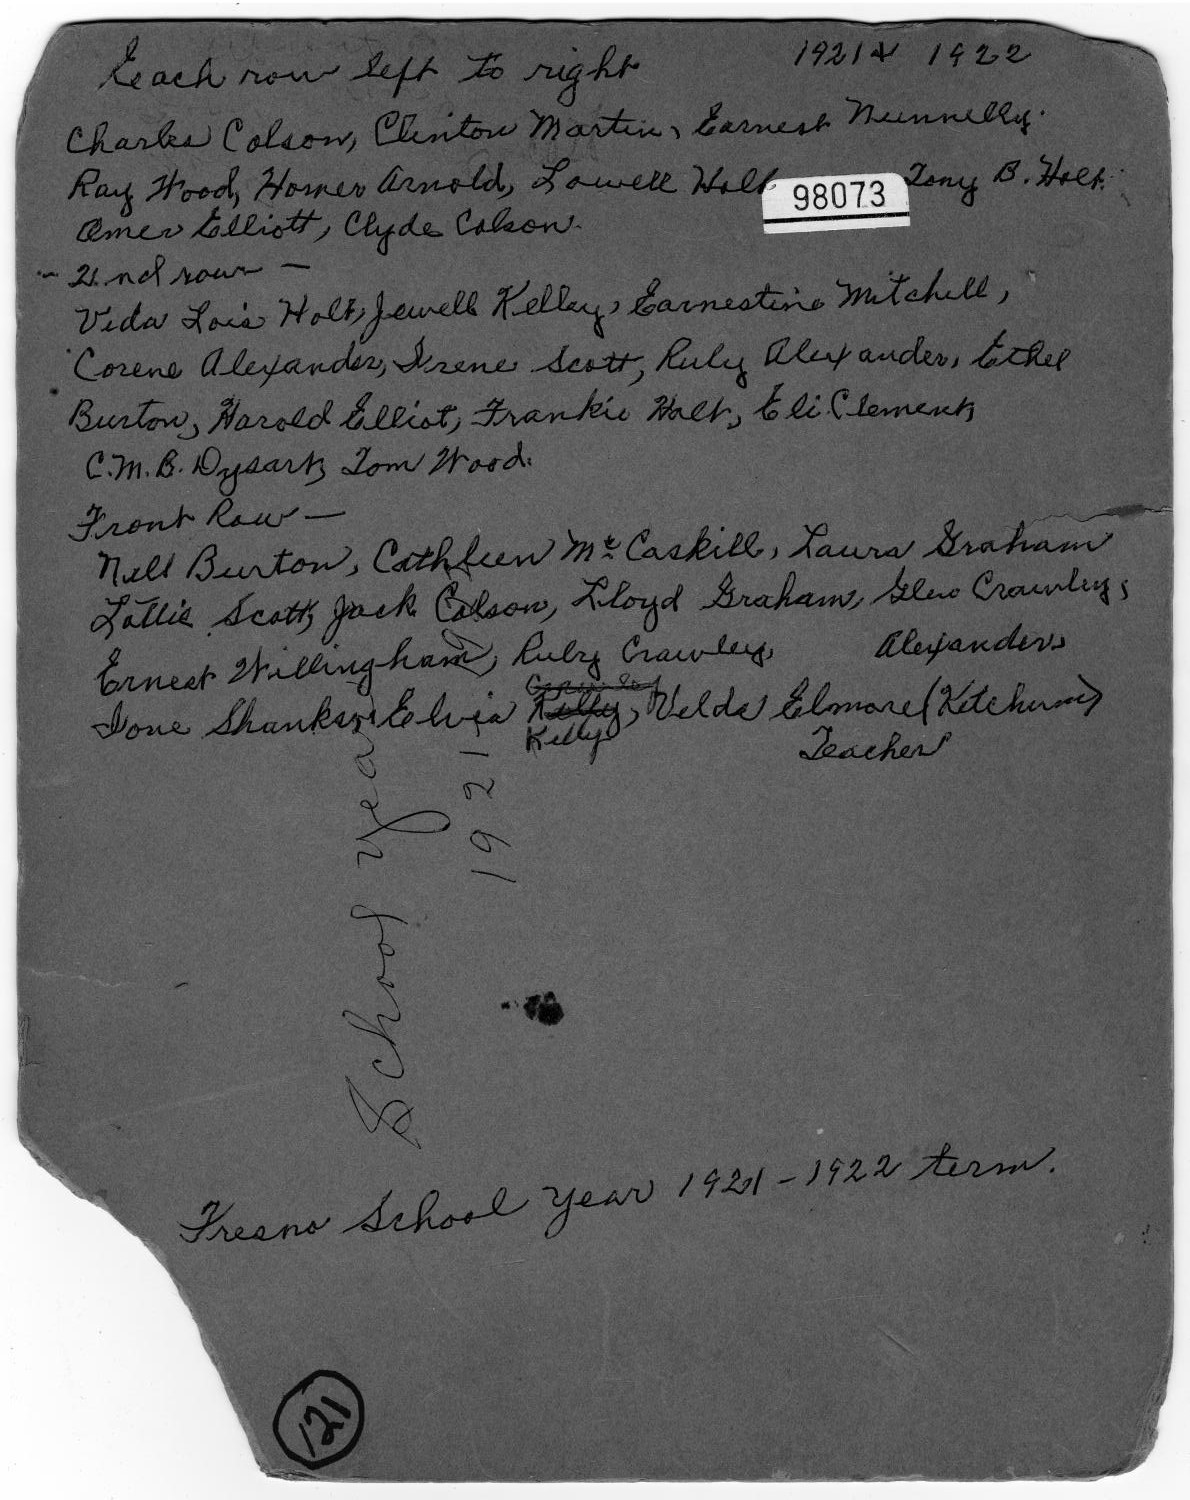 Each row left to right 1921 & 1922
Charles Colson, Clinton Martin, Earnest Nunnelly.
Ray Wood, Homer Arnold, Lowell Holt 98073 Tony B. Holt.
Omer Elliott, Clyde Colson.
2nd row —
Veda Lois Holt, Jewell Kelley, Earnestine Mitchell,
Corene Alexander, Irene Scott, Ruby Alexander, Ethel
Burton, Harold Elliot, Frankie Holt, Eli Clement,
C.M.B. Dysart, Tom Wood.
Front Row —
Nell Burton, Cathleen McCaskill, Laura Graham
Lottie Scott, Jack Colson, Lloyd Graham, Glen Crawley,
Ernest Willingham, Ruby Crawley, Alexander,
Ione Shanks, Elvia Kelly, Velda Elmore (Ketchum)
Kelly Teacher
School Year
1921
Fresno School Year 1921-1922 term.
121